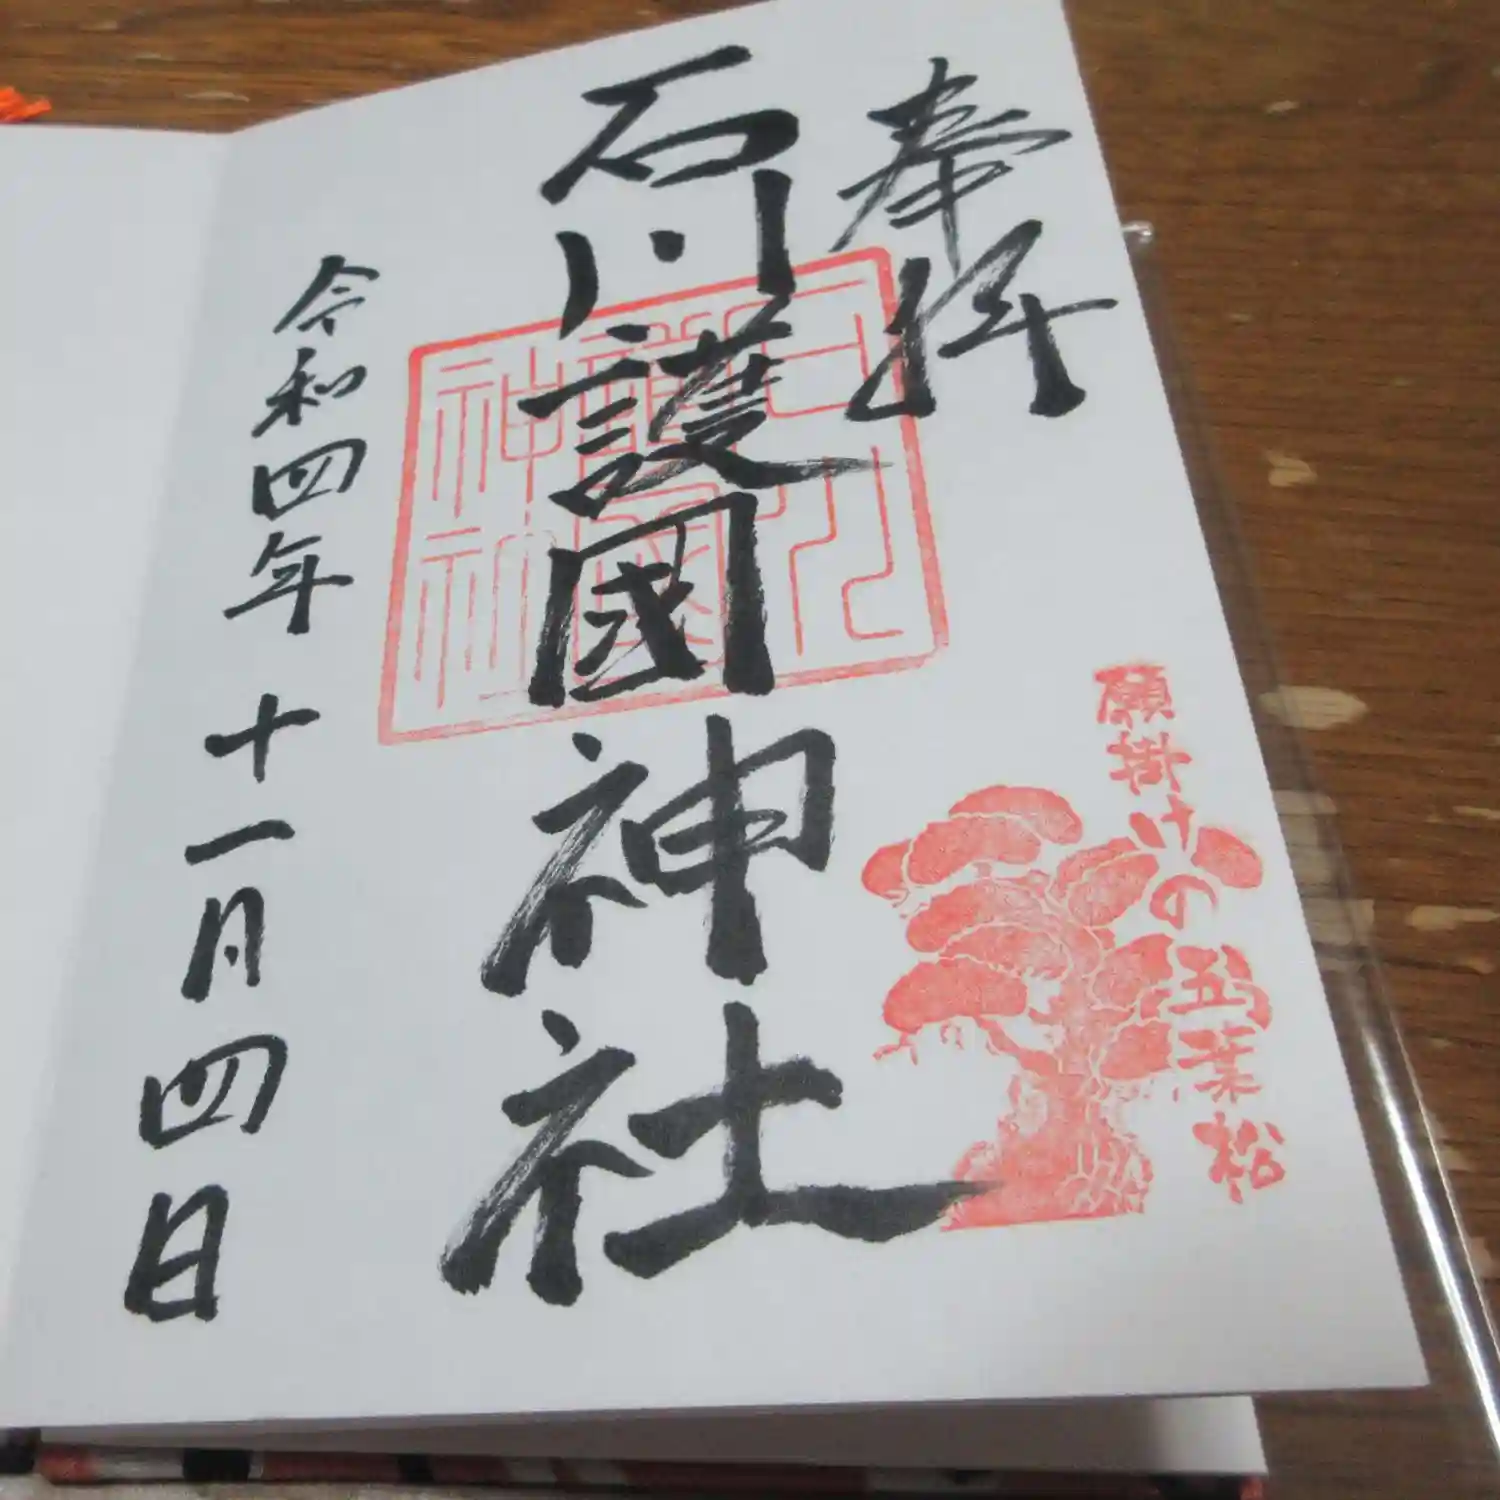 奉拝
石川護國神社
令和四年十一月四日
願掛けの五葉松
石川護國神社